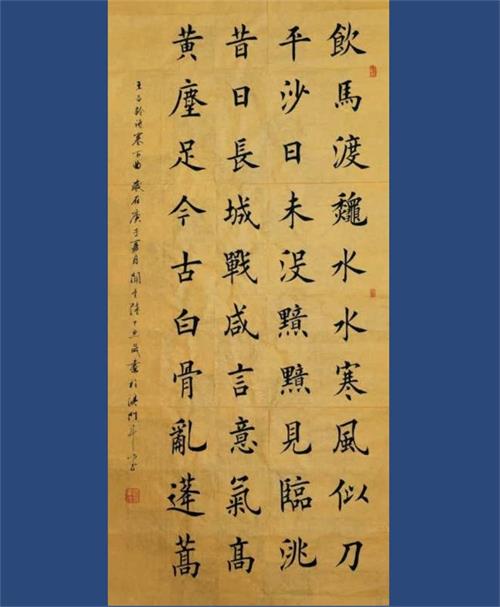 飲馬渡龝水水寒風似刀
平沙日未没黯黯見臨洮
昔日長城戰咸言意氣髙
黄塵足今古白骨亂蓬蒿
王昌齡詩塞下曲 歲在庚子夏月